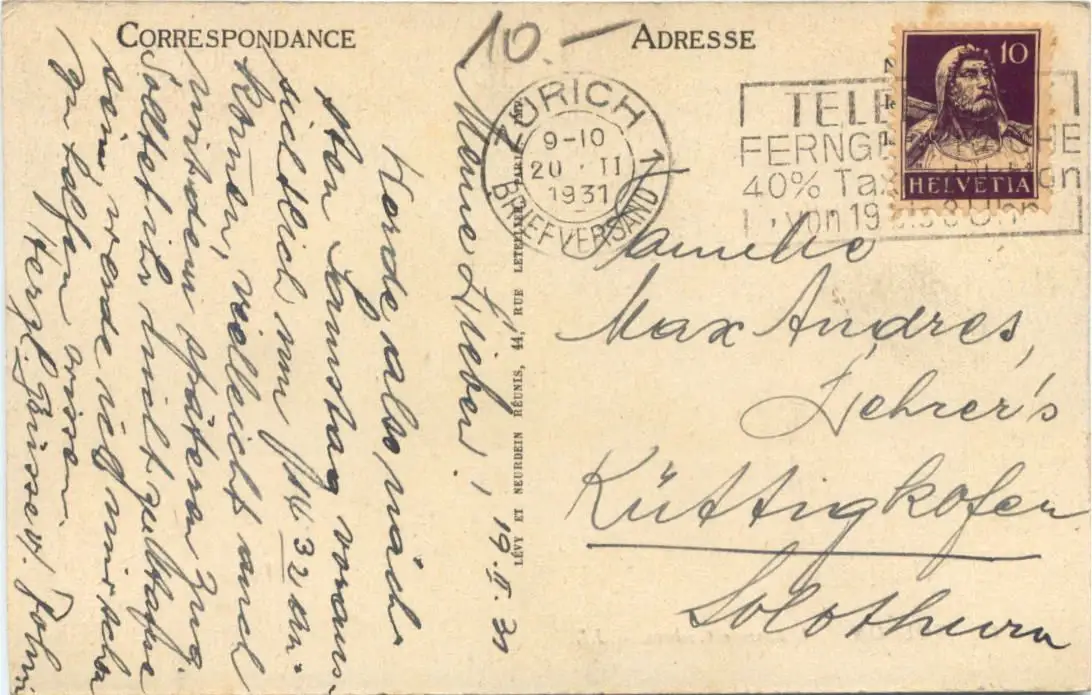 CORRESPONDANCE
ADRESSE
10.—
10
HELVETIA
ZÜRICH 1
9-10
20. II
1931
BRIEFVERSAND
TELE
FERNG
CHE
40% Tax
on
von 19
8 Uhr
LÉVY ET NEURDEIN RÉUNIS, 44, RUE LETELLIER, PARIS
Meine Lieben! 19. II. 31
Werde also näch-
sten Samstag voraus-
sichtlich um 14 32 an-
kommen, vielleicht auch
mit dem späteren Zug.
Solltet ihr nicht zu Hause
sein, werde ich mir schon
zu helfen wissen.
Herzl. Grüsse
Familie
Max Andres,
Lehrer's
Küttigkofen
Solothurn